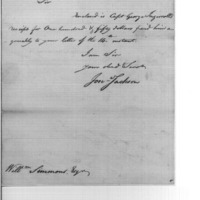 Sir
Enclosed is Capt George Ingersoll's
receipt for One hundred & fifty dollars paid him a
greeably to your letter of the 16th instant.
I am Sir
Your Obed Servt
Jon. Jackson
Willm Simmons Esqr